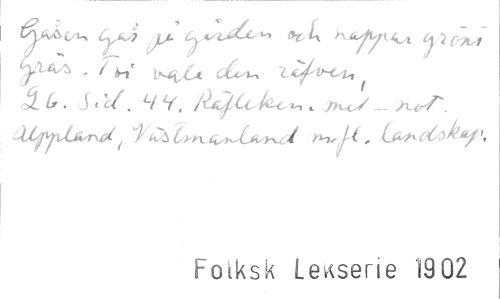 Gåsen går på gården och nappar grönt
gräs. Tvi vale den räfven,
26. Sid. 44. Räfleken. met-not.
Uppland, Västmanland m.fl. landskap.
Folksk Lekserie 1902